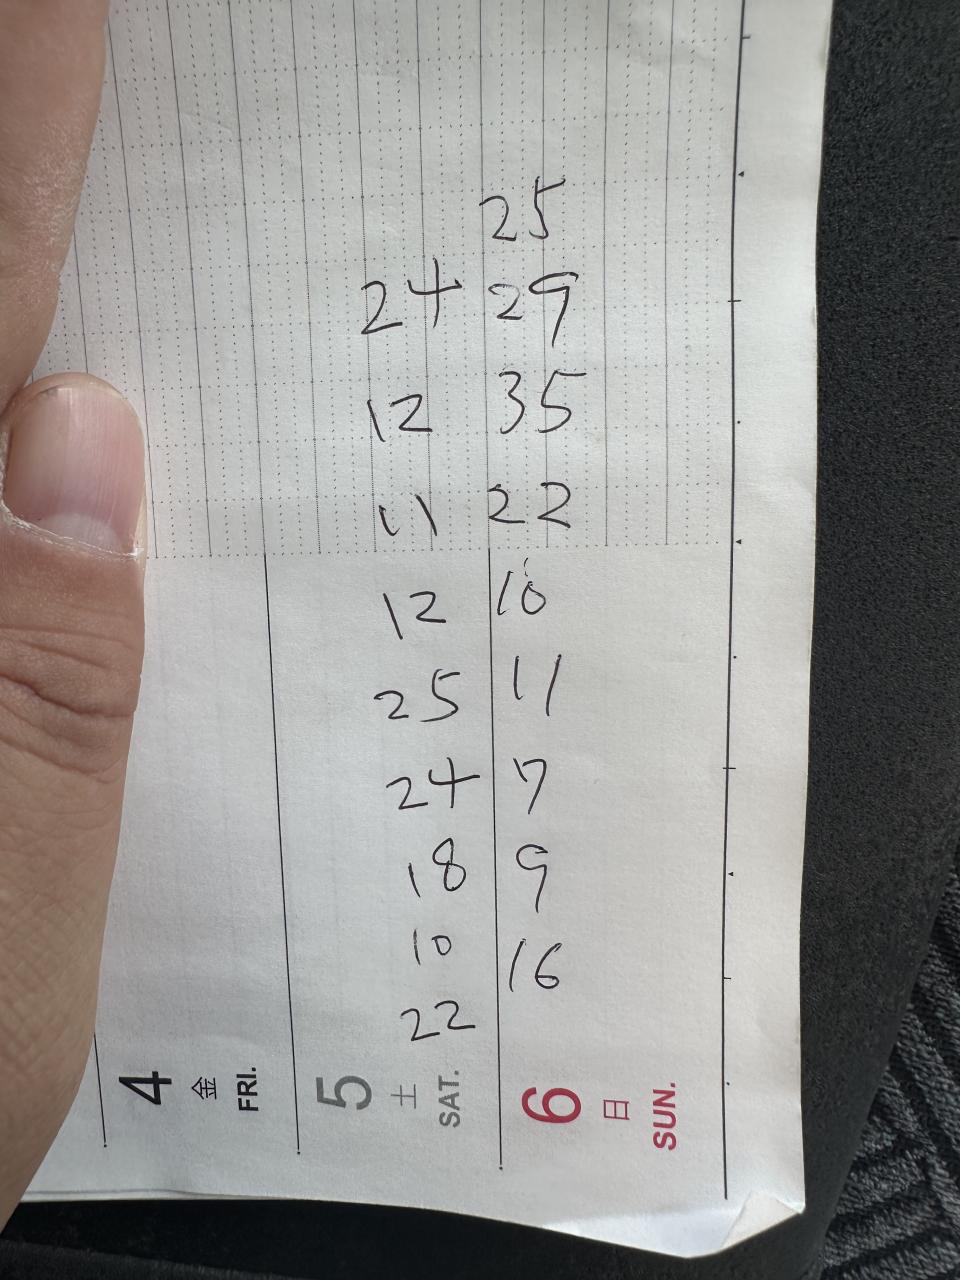 25
24 29
12 35
11 22
12 10
25 11
24 7
18 9
10 16
22
4 金 FRI.
5 土 SAT.
6 日 SUN.